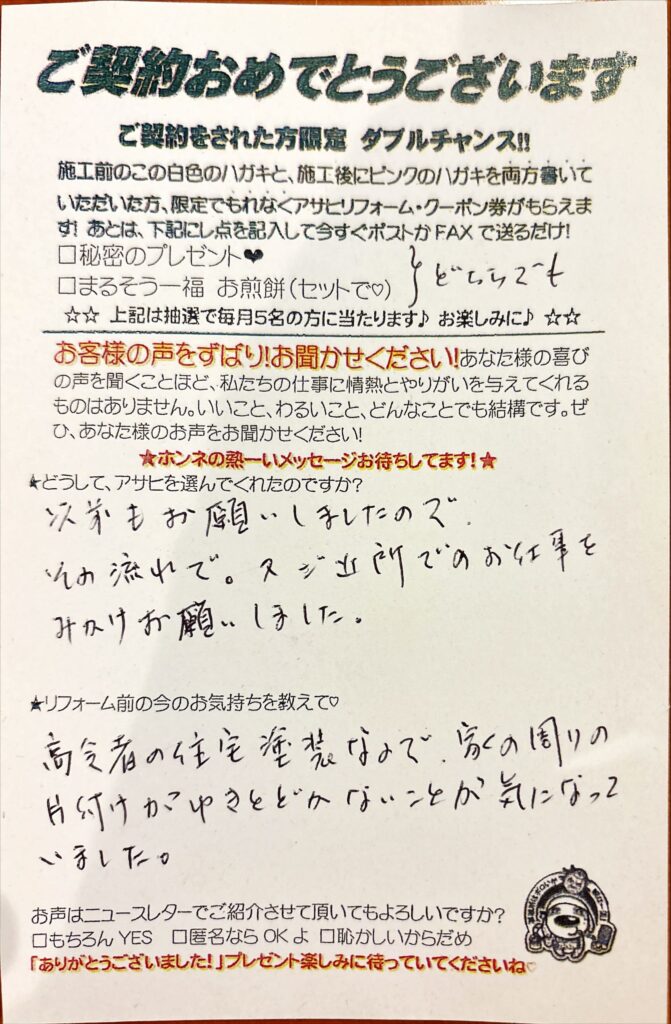 ご契約おめでとうございます
ご契約をされた方限定 ダブルチャンス!!
施工前のこの白色のハガキと、施工後にピンクのハガキを両方書いて
いただいた方、限定でもれなくアサヒリフォーム・クーポン券がもらえま
す! あとは、下記にし点を記入して今すぐポストかFAXで送るだけ!
□秘密のプレゼント❤
□まるそう一福 お煎餅(セットで♡)
どちらでも
☆☆ 上記は抽選で毎月5名の方に当たります♪ お楽しみに♪ ☆☆
お客様の声をずばり!お聞かせください!あなた様の喜び
の声を聞くことほど、私たちの仕事に情熱とやりがいを与えてくれる
ものはありません。いいこと、わるいこと、どんなことでも結構です。ぜ
ひ、あなた様のお声をお聞かせください!
★ホンネの熱ーいメッセージお待ちしてます!★
★どうして、アサヒを選んでくれたのですか?
以前もお願いしましたので、
その流れで。又ご近所でのお仕事を
みかけお願いしました。
★リフォーム前の今のお気持ちを教えて♡
高令者の住宅塗装なので、家の周りの
片付けがゆきとどかないことが気になって
いました。
お声はニュースレターでご紹介させて頂いてもよろしいですか?
□もちろんYES □匿名ならOKよ □恥かしいからだめ
「ありがとうございました!」プレゼント楽しみに待っていてくださいね♡